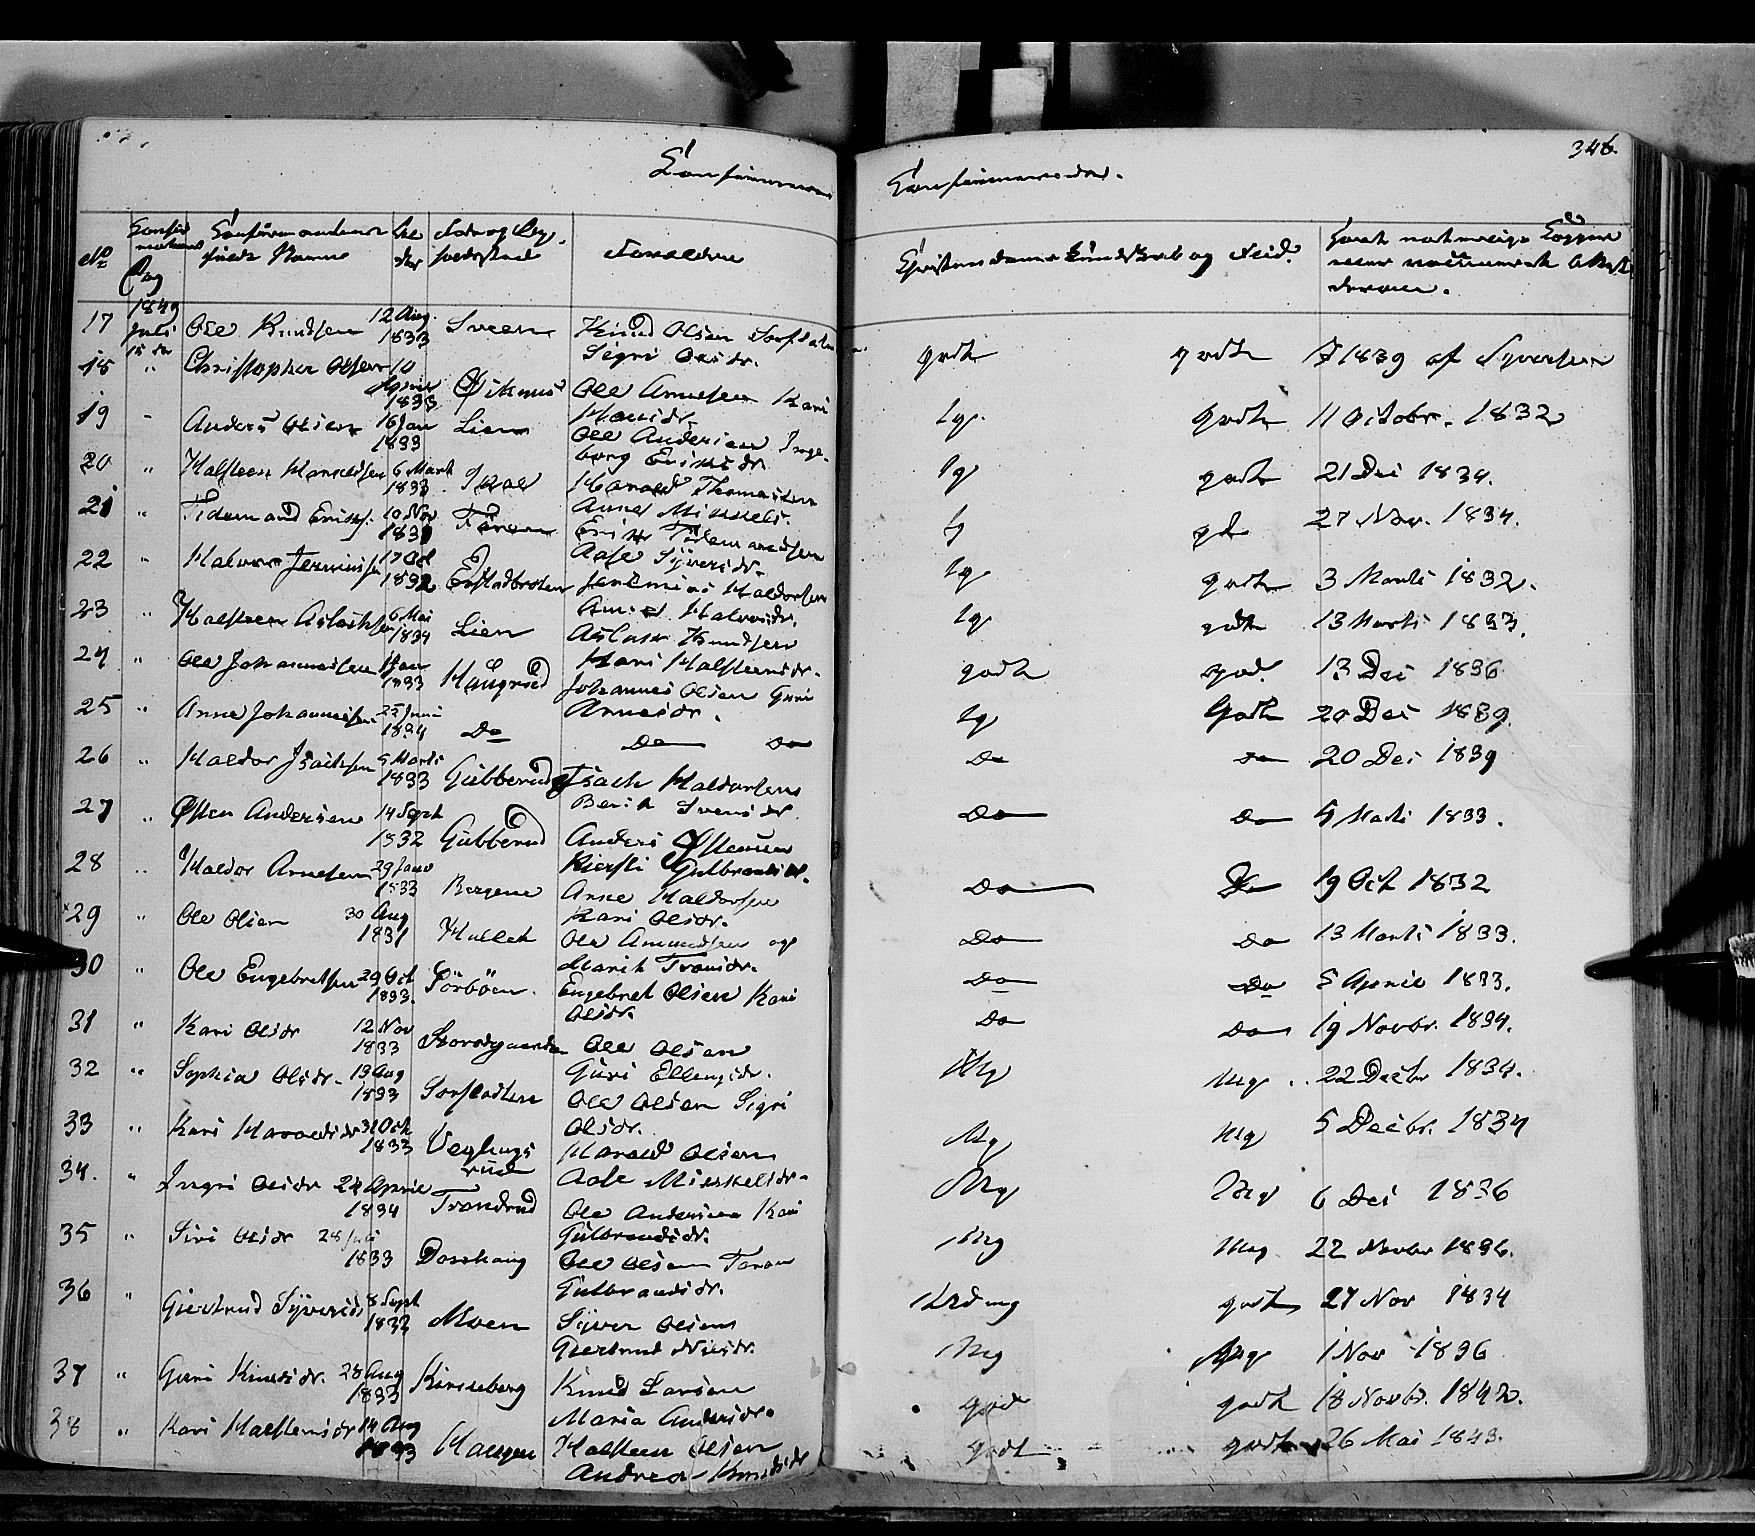 346.
Confirmerede.
No
Confirmandens fulde Navne
Forældre
Christendoms Kundskab og Flid.
1849
Juli
15 de
17 Ole Knudsen 12 Aug. 1833 Sveen Knud Olsen
Sigri Olsdr. godt godt 1839 af Syversen
18 " Christopher Olsen 10 April 1833 Ole Arnesen Kari
Hansdr. tg. godt 11 Octobr. 1832
19 Anders Olsen 16 Jan 1833 Lien Ole Andersen Inge-
borg Eriksdr. tg godt 21 Dec 1834.
20 " Halsteen Haraldsen 6 Marts 1833 Harald Thomassen
Anne Mikkels. tg 27 Nov. 1834.
21 " Tidemand Eriks. 10 Nov Erik Tidemandsen
Aase Syversdr. tg godt 3 Marts 1832.
22 " Halvor 17 Oct 1832 Haldorsen
Halvorsdr. tg godt 13 Marts 1833.
23 " Halsteen Aslaksen 6 Mai 1834 Lien Aslak Knudsen
Kari Halsteensdr. godt god. 13 Dec 1836
24 " Ole Johannessen Jan 1833 Haugerud Johannes Olsen Guri
Arnesdr. tg Godt 20 Dec 1839.
25 " Anne Johannesen 25 Juni 1834 Do Do Do Do Do 20 Dec 1839
26 " Haldor Isachsen 9 Marts 1833 Gubberud Isach Haldorsen
Berit Svensdr Do Do 5 Marts 1833.
27 " Østen Andersen 14 Sept 1832 Gubberud Anders Østensen
Kiersti Gulbrandsdr. Do Do 19 Oct 1832
28 " Haldor Arnesen 29 Janv 1833 Bergene Arne Haldorsen
Kari Olsdr. Do Do 13 Marts 1833.
29 " Ole Olsen 30 Aug 1831 Ole Amundsen og
Marit Transdr. Do Do 5 April 1833.
30 " Ole Engebretsen 29 Oct 1833. Sörböen. Engebret Olsen Kari
Olsdr. Do Do 19 Novbr. 1834.
31 " Kari Olsdr 12 Nov 1833 Ole Olsen
Guri Ellensdr. Mg Mg 22 Decbr 1834.
32 " Sophia Olsdr. 13 Aug 1833 Ole Olsen Sigri
Olsdr. Mg Mg 5 Decbr. 1834
33 " Kari Haraldsdr 31 Oct 1833 Veglungsrud Harald Olsen
Aase Mikkelsdr. Mg Mg 6 Dec 1836
34. " Ingri Olsdr 24 April 1834 Trondrud Ole Andersen Kari
Gulbrandsdr. Mg Mg 22 Novbr 1836.
35 " Siri Olsdr 28 Juli 1833 Ole Olsen
Gulbrandsdr. godt 27 Nov 1834
36 " Giertrud Syversd. 8 Sept 1832 Moen Syver Olsen
Giertrud Nilsdr. Mg Mg 1 Nov 1836
37 " Guri Knudsdr. 28 Aug 1833 Kinneberg Knud Larsen
Maria Andersdr. god godt 18 Novbr. 1842.
38 " Kari Halsteensdr 14 Aug 1833 Haugen Halsteen Olsen
Andrea Knudsdr godt godt 26 Mai 1843.